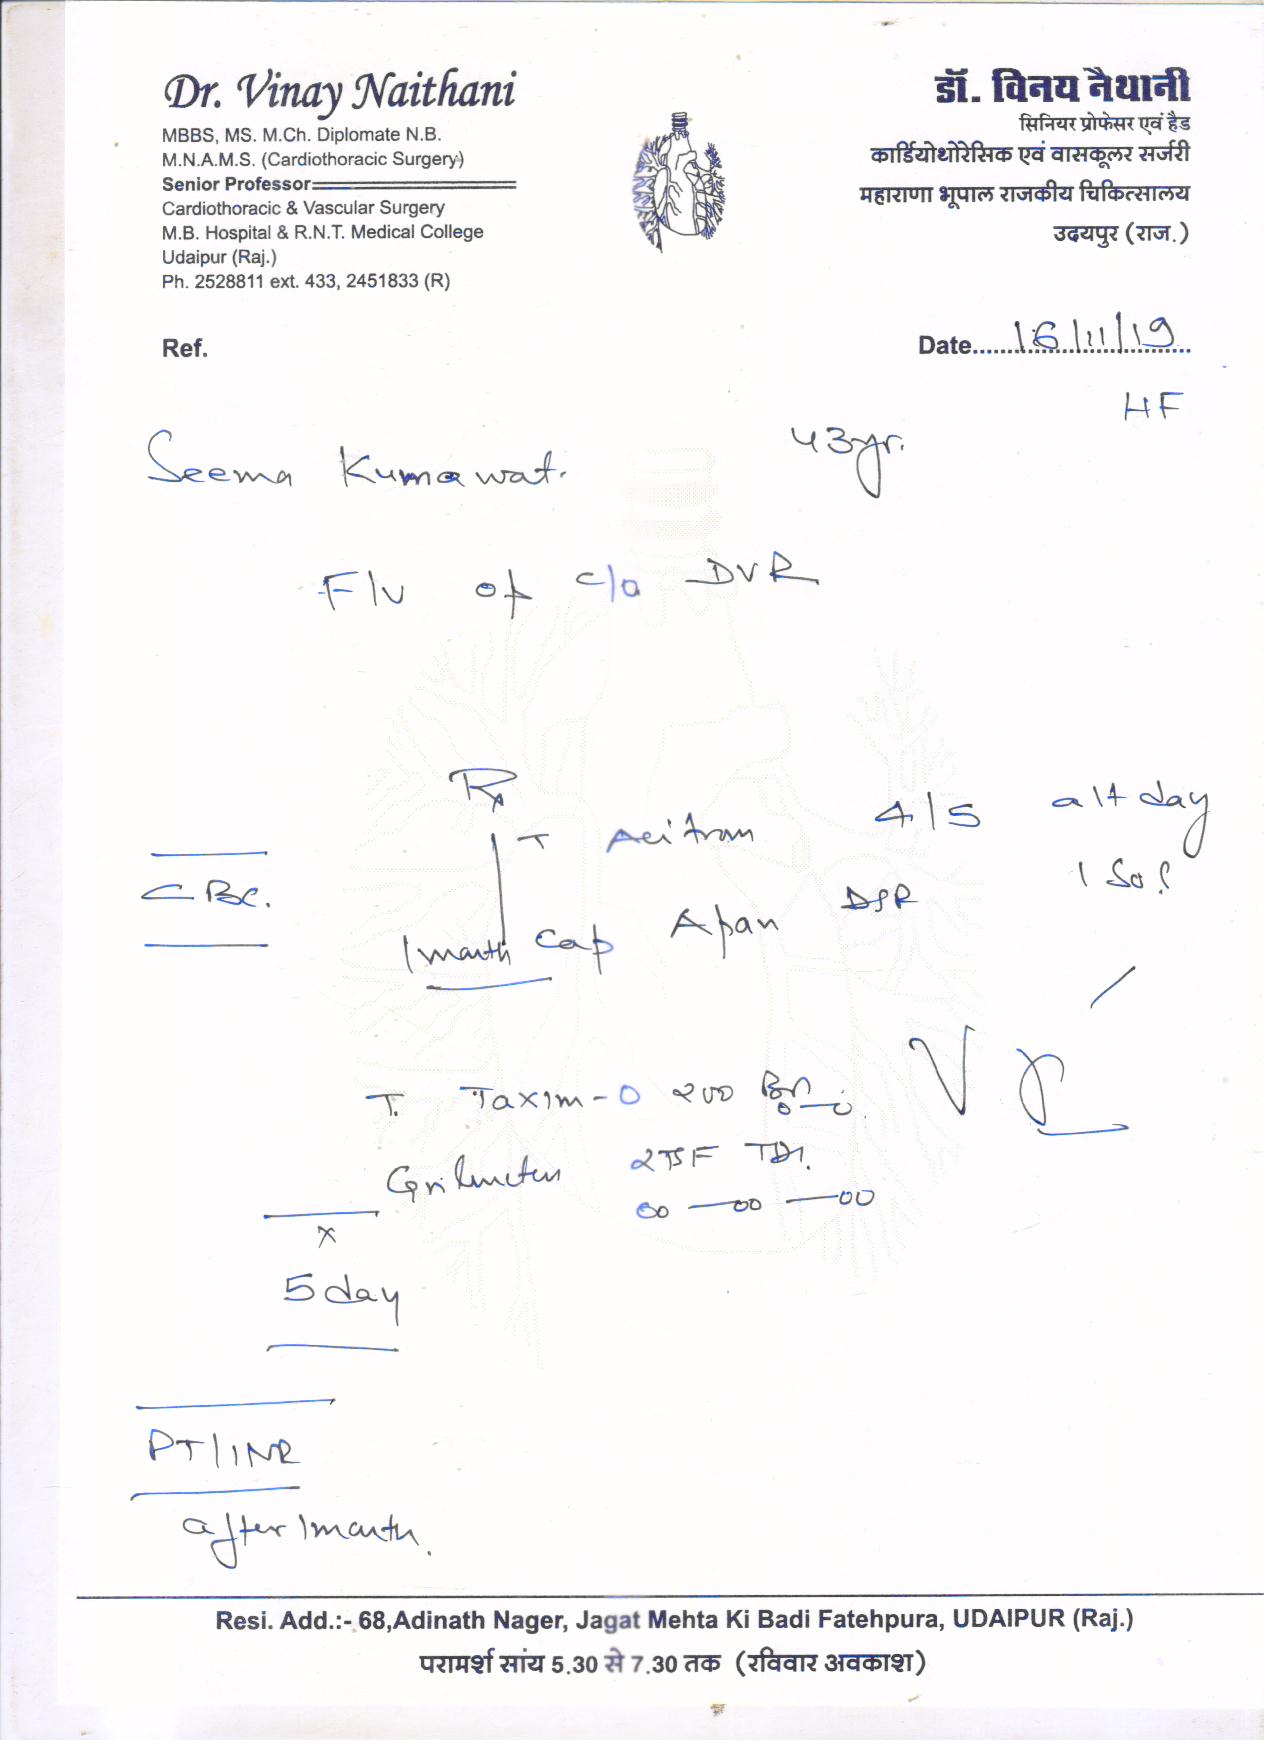 Dr. Vinay Naithani
MBBS, MS. M.Ch. Diplomate N.B.
M.N.A.M.S. (Cardiothoracic Surgery)
Senior Professor
Cardiothoracic & Vascular Surgery
M.B. Hospital & R.N.T. Medical College
Udaipur (Raj.)
Ph. 2528811 ext. 433, 2451833 (R)
डॉ. विनय नैथानी
सिनियर प्रोफेसर एवं हैड
कार्डियोथोरेसिक एवं वासकूलर सर्जरी
महाराणा भूपाल राजकीय चिकित्सालय
उदयपुर (राज.)
Ref.
Date 16/11/19
HF
Seema Kumawat. 43yr.
F/U of c/o DVR
Rx
T Acitrom 4/5 alt day
CBC.
1 month Cap Apan DSR
T. Taxim-O 200 BD
0—0
275F TDS.
00—00—00
x
5 day
PT/INR
after 1 month.
Resi. Add.:- 68,Adinath Nager, Jagat Mehta Ki Badi Fatehpura, UDAIPUR (Raj.)
परामर्श सांय 5.30 से 7.30 तक (रविवार अवकाश)